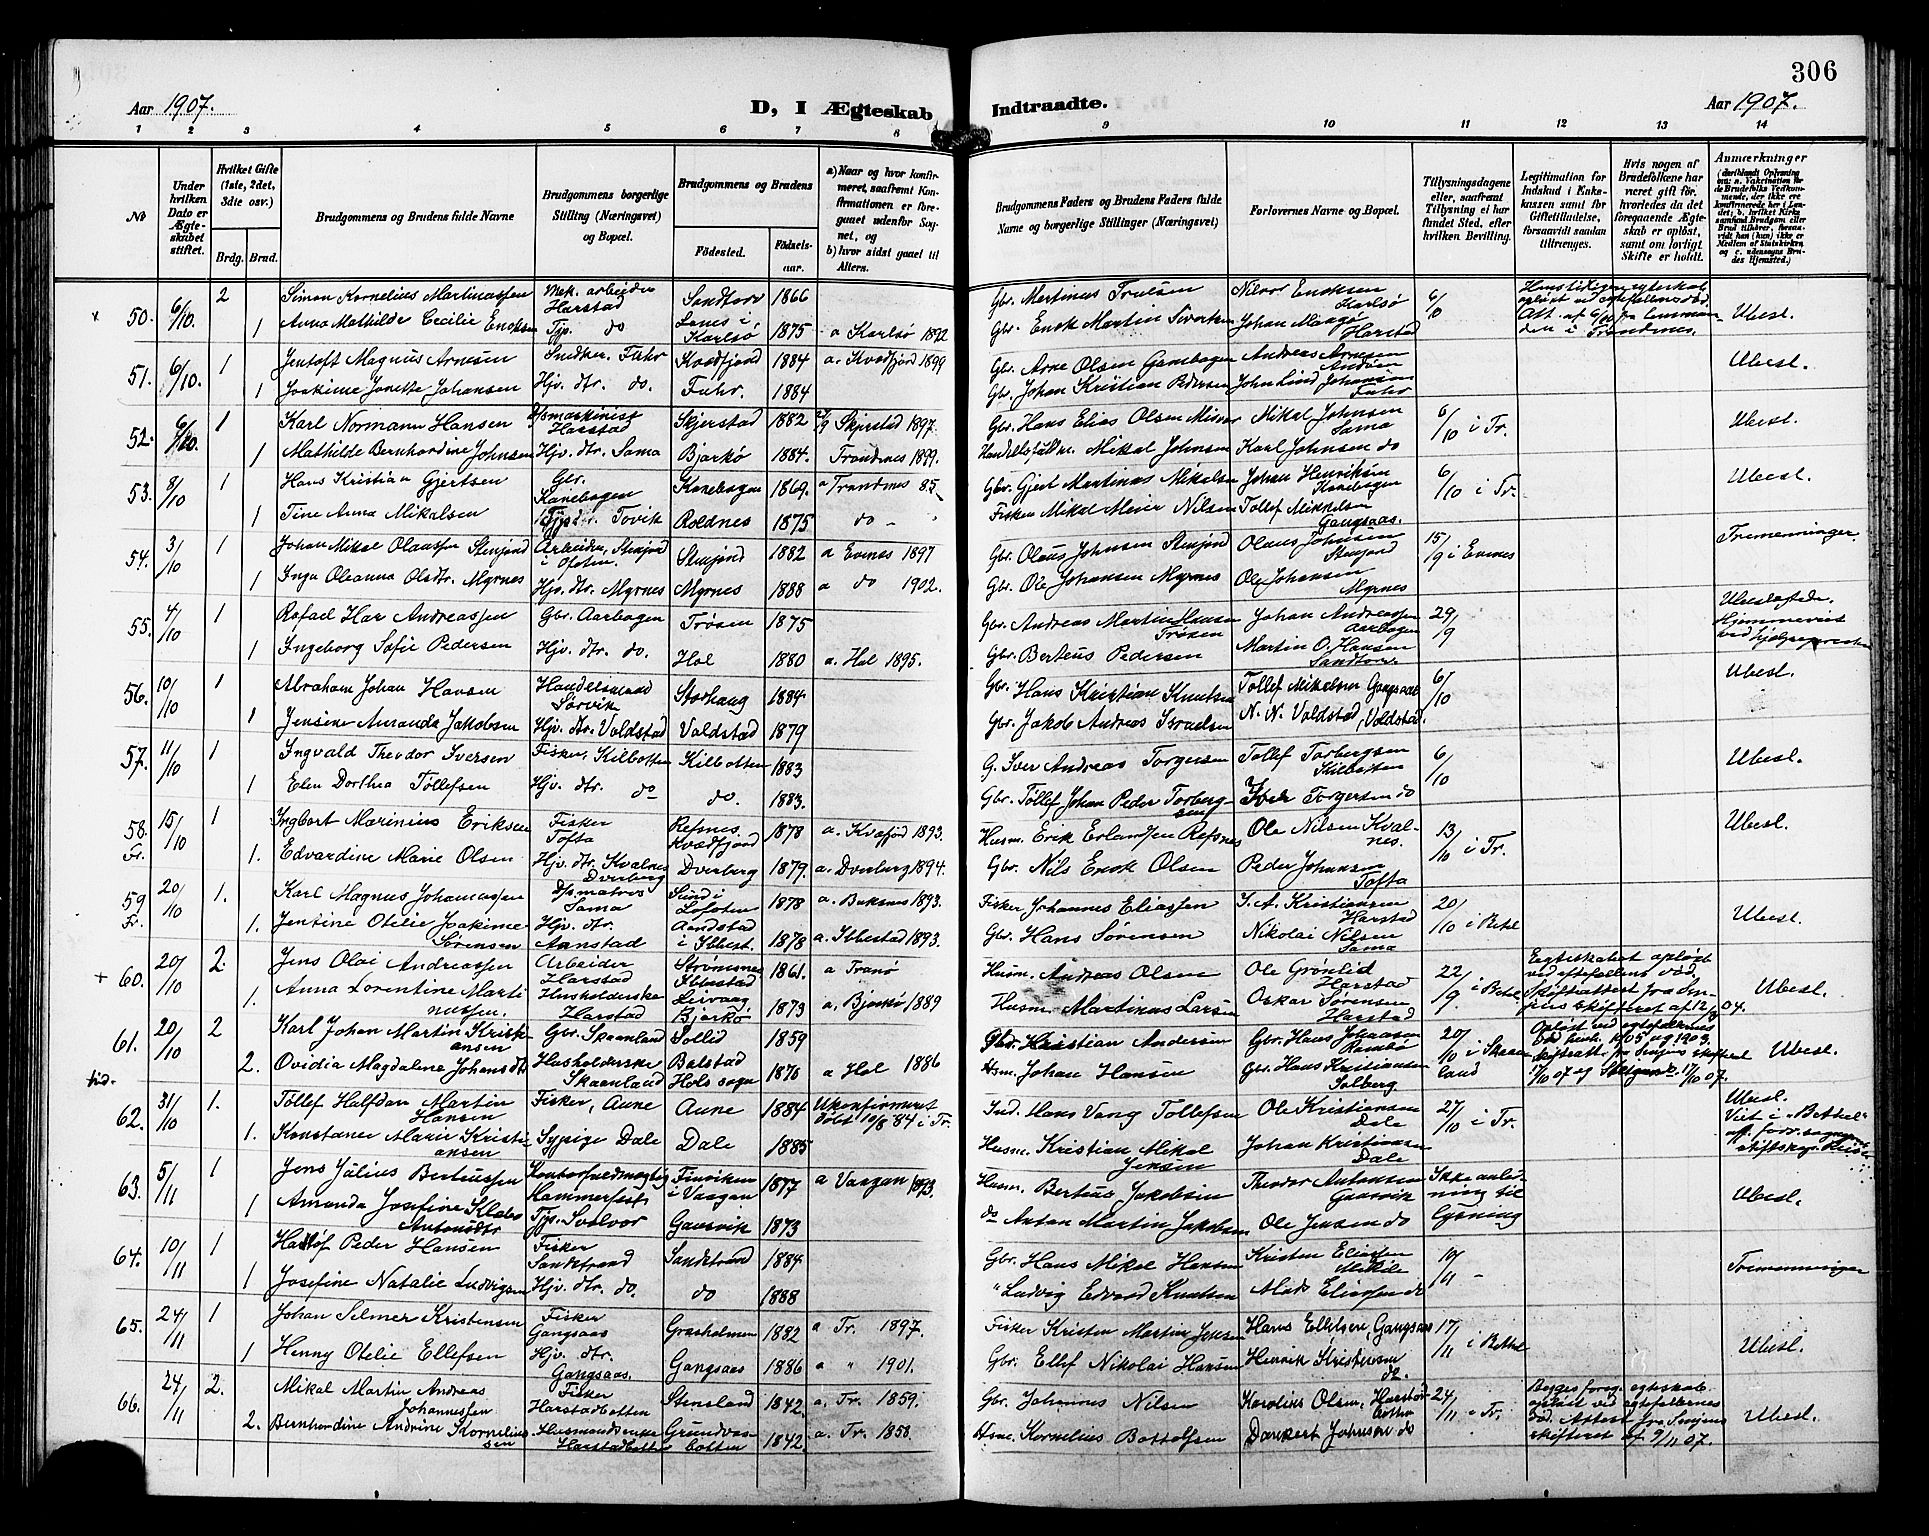 306
Aar 1907.
D, I Ægteskab
Indtraadte.
Aar 1907.
1 2 3 4 5 6 7 8 9 10 11 12 13 14
No
Under hvilken Dato er Ægteskabet stiftet.
Hvilket Gifte (1ste, 2det, 3die osv.)
Brdg. Brud.
Brudgommens og Brudens fulde Navne
Brudgommens borgerlige Stilling (Næringsvei) og Bopæl.
Brudgommens og Brudens
Fødested. Fødselsaar.
a) Naar og hvor konfirmeret, saafremt Konfirmationen er foregaaet udenfor Sognet, og
b) hvor sidst gaaet til Alters.
Brudgommens Faders og Brudens Faders fulde Navne og borgerlige Stillinger (Næringsvei)
Forlovernes Navne og Bopæl.
Tillysningsdagene eller, saafremt Tillysning ei har fundet Sted, efter hvilken Bevilling.
Legitimation for Indskud i Enkekassen samt for Giftetilladelse, forsaavidt saadan tiltrænges.
Hvis nogen af Brudefolkene har været gift før, hvorledes da det foregaaende Ægteskab er opløst, samt om lovligt Skifte er holdt.
Anmærkninger
50. 6/10. 2 Simon Kornelius Martinassen Mek. arbeider Harstad Sandtorv 1866 Gbr. Martinus Trulsen 6/10 Ubesl.
1 Anna Mathilde Cecilie Enoksen Tjp. do Karlsø 1875 a Karlsø 1892 Gbr. Enok Martin Harstad
51. 6/10. 1 Jentoft Magnus Arnesen Snedker. Fuhr Kvædfjord 1884 a. Kvædfjord 1899 Gbr. Arne Olsen Andreas Arnesen Ubesl.
1 Joakime Jonette Johansen Hjv. dtr. do. Fuhr. 1884 Gbr. Johan Kristian Pedersen John Lind Johansen Fuhr
52. 6/10. 1 Karl Normann Hansen D/smaskinist Harstad Skjerstad 1882 Skjerstad 1897. Gbr. Hans Elias Olsen Misvær Mikal Johnsen Sama 6/10 i Tr. Ubesl.
1 Mathilde Bernhardine Johnsen Hjv. dtr. Sama Bjarkø 1884. Trondnes 1899. Mikal Johnsen Karl Johnsen do
53. 8/10 1 Hans Kristian Gjertsen Gbr. Kanebogen Kanebogen 1869. a Trondnes 85 Gbr. Gjert Martinas Mikalsen Johan Henriksen Kanebogen 6/10 i Tr. Ubesl.
1 Tine Anna Mikalsen Tovik Roldnes 1875 do Fisker Mikal Meier Nilsen Tollef Mikkelsen Gangsaas.
54. 3/10 1 Johan Mikal Olaussen Stenjord Arbeider, Stenjord i Ofoten Stenjord 1882 a Evenes 1897 Gbr. Olaus Johnsen Stenjord Olaus Johnsen Stenjord 15/9 i Evenes Tremenninger.
1 Inga Oleanna Olsdtr. Myrnes Hjv. dtr. Myrnes Myrnes 1888 a do 1902. Gbr. Ole Johansen Myrnes Ole Johansen Myrnes
55. 4/10 1 Rafael Har Andreassen Gbr. Aarbogen Trøsen 1875 Gbr. Andreas Martin Hansen Trøsen Johan Andreassen Aarbogen 29/9 Ubeslægtede.
1 Ingeborg Sofie Pedersen Hjv. dtr. do. Hol 1880 a. Hol 1895. Gbr. Berteus Pedersen Martin O. Hansen Sandtorv
56. 10/10 1 Abraham Johan Hansen Handelsmand Sørvik Storhaug 1884 Gbr. Hans Kristian Knutsen Tollef Mikelsen Gangsaas 6/10 Ubesl.
1 Jensine Amanda Jakobsen Hjv. dtr. Voldstad Voldstad 1879 Gbr. Jakob Andreas Israelsen N. N. Voldstad, Voldstad.
57. 11/10 1 Ingvald Theodor Iversen Fisker, Kilbotten Kilbotten 1883 G. Iver Andreas Torgersen Tollef Torbergsen Kilbotten 6/10 Ubesl.
1 Elen Dorthea Tøllefsen Hjv. dtr. do do. 1883. Gbr. Tøllef Johan Peder Torbergsen Iver Torgersen do
58. Fr. 15/10 1 Ingbort Marinius Eriksen Fisker Tofta Refsnes. Kvædfjord 1878 a. Kvæfjord 1893. Husm. Erik Erlandsen Refsnes Ole Nilsen Kvalnes. 13/10 i Tr. Ubesl.
1. Edvardine Marie Olsen Hjv. dtr. Kvalnes Dverberg Dverberg 1879. a. Dverberg 1894. Gbr. Nils Enok Olsen Peder Johansen Tofta
59 Fr. 20/10 1. Karl Magnus Johannassen D/smatros Sama Sund i Lofoten 1878 a. Buksnes 1893. Fisker Johannes Eliassen I. A. Kristiansen Harstad 20/10 i Betel Ubesl.
1. Jentine Otelie Joakime Sørensen Hjv. dtr. Aanstad Aandstad i Ibbest. 1878 a. Ibbestad 1893. Gbr. Hans Sørensen Nikolai Nilsen Sama
+ 60. 20/10 2. Jens Olai Andreassen Arbeider Harstad Strømsnes Ibbestad 1861. a Tranø Husm. Andreas Olsen Ole Grønlid Harstad 22/9 i Betel Egteskabet opløst ved egtefellens død, Ubesl.
1. Anna Lorentine Martinussen. Husholderske Harstad Leirvaag Bjarkø 1873 a. Bjarkø 1889 Husm. Martinus Larsen Oskar Sørensen Harstad
61. 20/10 2 Karl Johan Martin Kristiansen Gbr. Skaanland Sollid 1859 Gbr. Kristian Andersen Gbr. Hans Johansen 20/10 i Skaanland Opløst ved egtefællernes død Ubesl.
2. Ovidia Magdalene Johansdtr Husholderske Skaanland Balstad Hols sogn 1870 a Hol 1886 Hsm. Johan Hansen Gbr. Hans Kristiansen Solberg
62. 31/10 1. Tøllef Halfdan Martin Hansen Fisker, Aune Aune 1884 Ukonfirmeret Døbt 10/8 84 i Tr. Ind. Hans Vang Tollefsen Ole Kristiansen Dale 27/10 i Tr. Ubesl. Viet i "Bethel"
1. Konstance Marie Kristiansen Sypige Dale Dale 1885 Husm. Kristian Mikal Jensen Johan Kristiansen Dale
63. 5/11 1 Jens Julius Berteussen Kontorfuldmægtig Hammerfest Finviken i Vaagan 1877 a Vaagan 1893. Husm. Berteus Jakobsen Theodor Antonsen Gausvik Ikke anledning til lysning Ubesl.
1 Amanda Josefine Klæbo Antonsdtr Tjp. Svolvør Gausvik 1873 do Anton Martin Jakobsen Ole Jensen do
64. 10/11 1 Hallof Peder Hansen Fisker Sandstrand Sandstrand 1884 Gbr. Hans Mikal Hansen Kristen Eliassen 10/11 Tremenninger
1 Josefine Natalie Ludvigsen Hjv. dtr. do. do 1888 " Ludvig Edvard Knudsen Eliassen do
65. 24/11 1 Johan Selmer Kristensen Fisker Gangsaas Grasholmen 1882 a Tr. 1897. Fisker Kristen Martin Jensen Hans Ellefsen, Gangsaas 17/11 i Bethel Ubesl.
1 Henny Otelie Ellefsen Hjv. dtr. Gangsaas. Gangsaas 1886 a " 1901. Gbr. Ellef Nikolai Hansen Henrik Kristensen do.
66. 24/11 2. Mikal Martin Andreas Johannessen Fisker Harstadbotten Stensland 1842. a. Tr. 1859. Gbr. Johannes Nilsen Karolius Olsen, Harstadbotten 24/11 i Tr. Begges foreg. egteskab opløst ved egtefællernes død. Attest fra Senjens skifteret af 9/11 07. Ubesl.
2. Bernhardine Andrine Korneliussen Husmandsenke Harstadbotten Grundvasbotten 1842. a. Tr. 1858. Hsm. Kornelius Bottolfsen Dankert Johnsen do